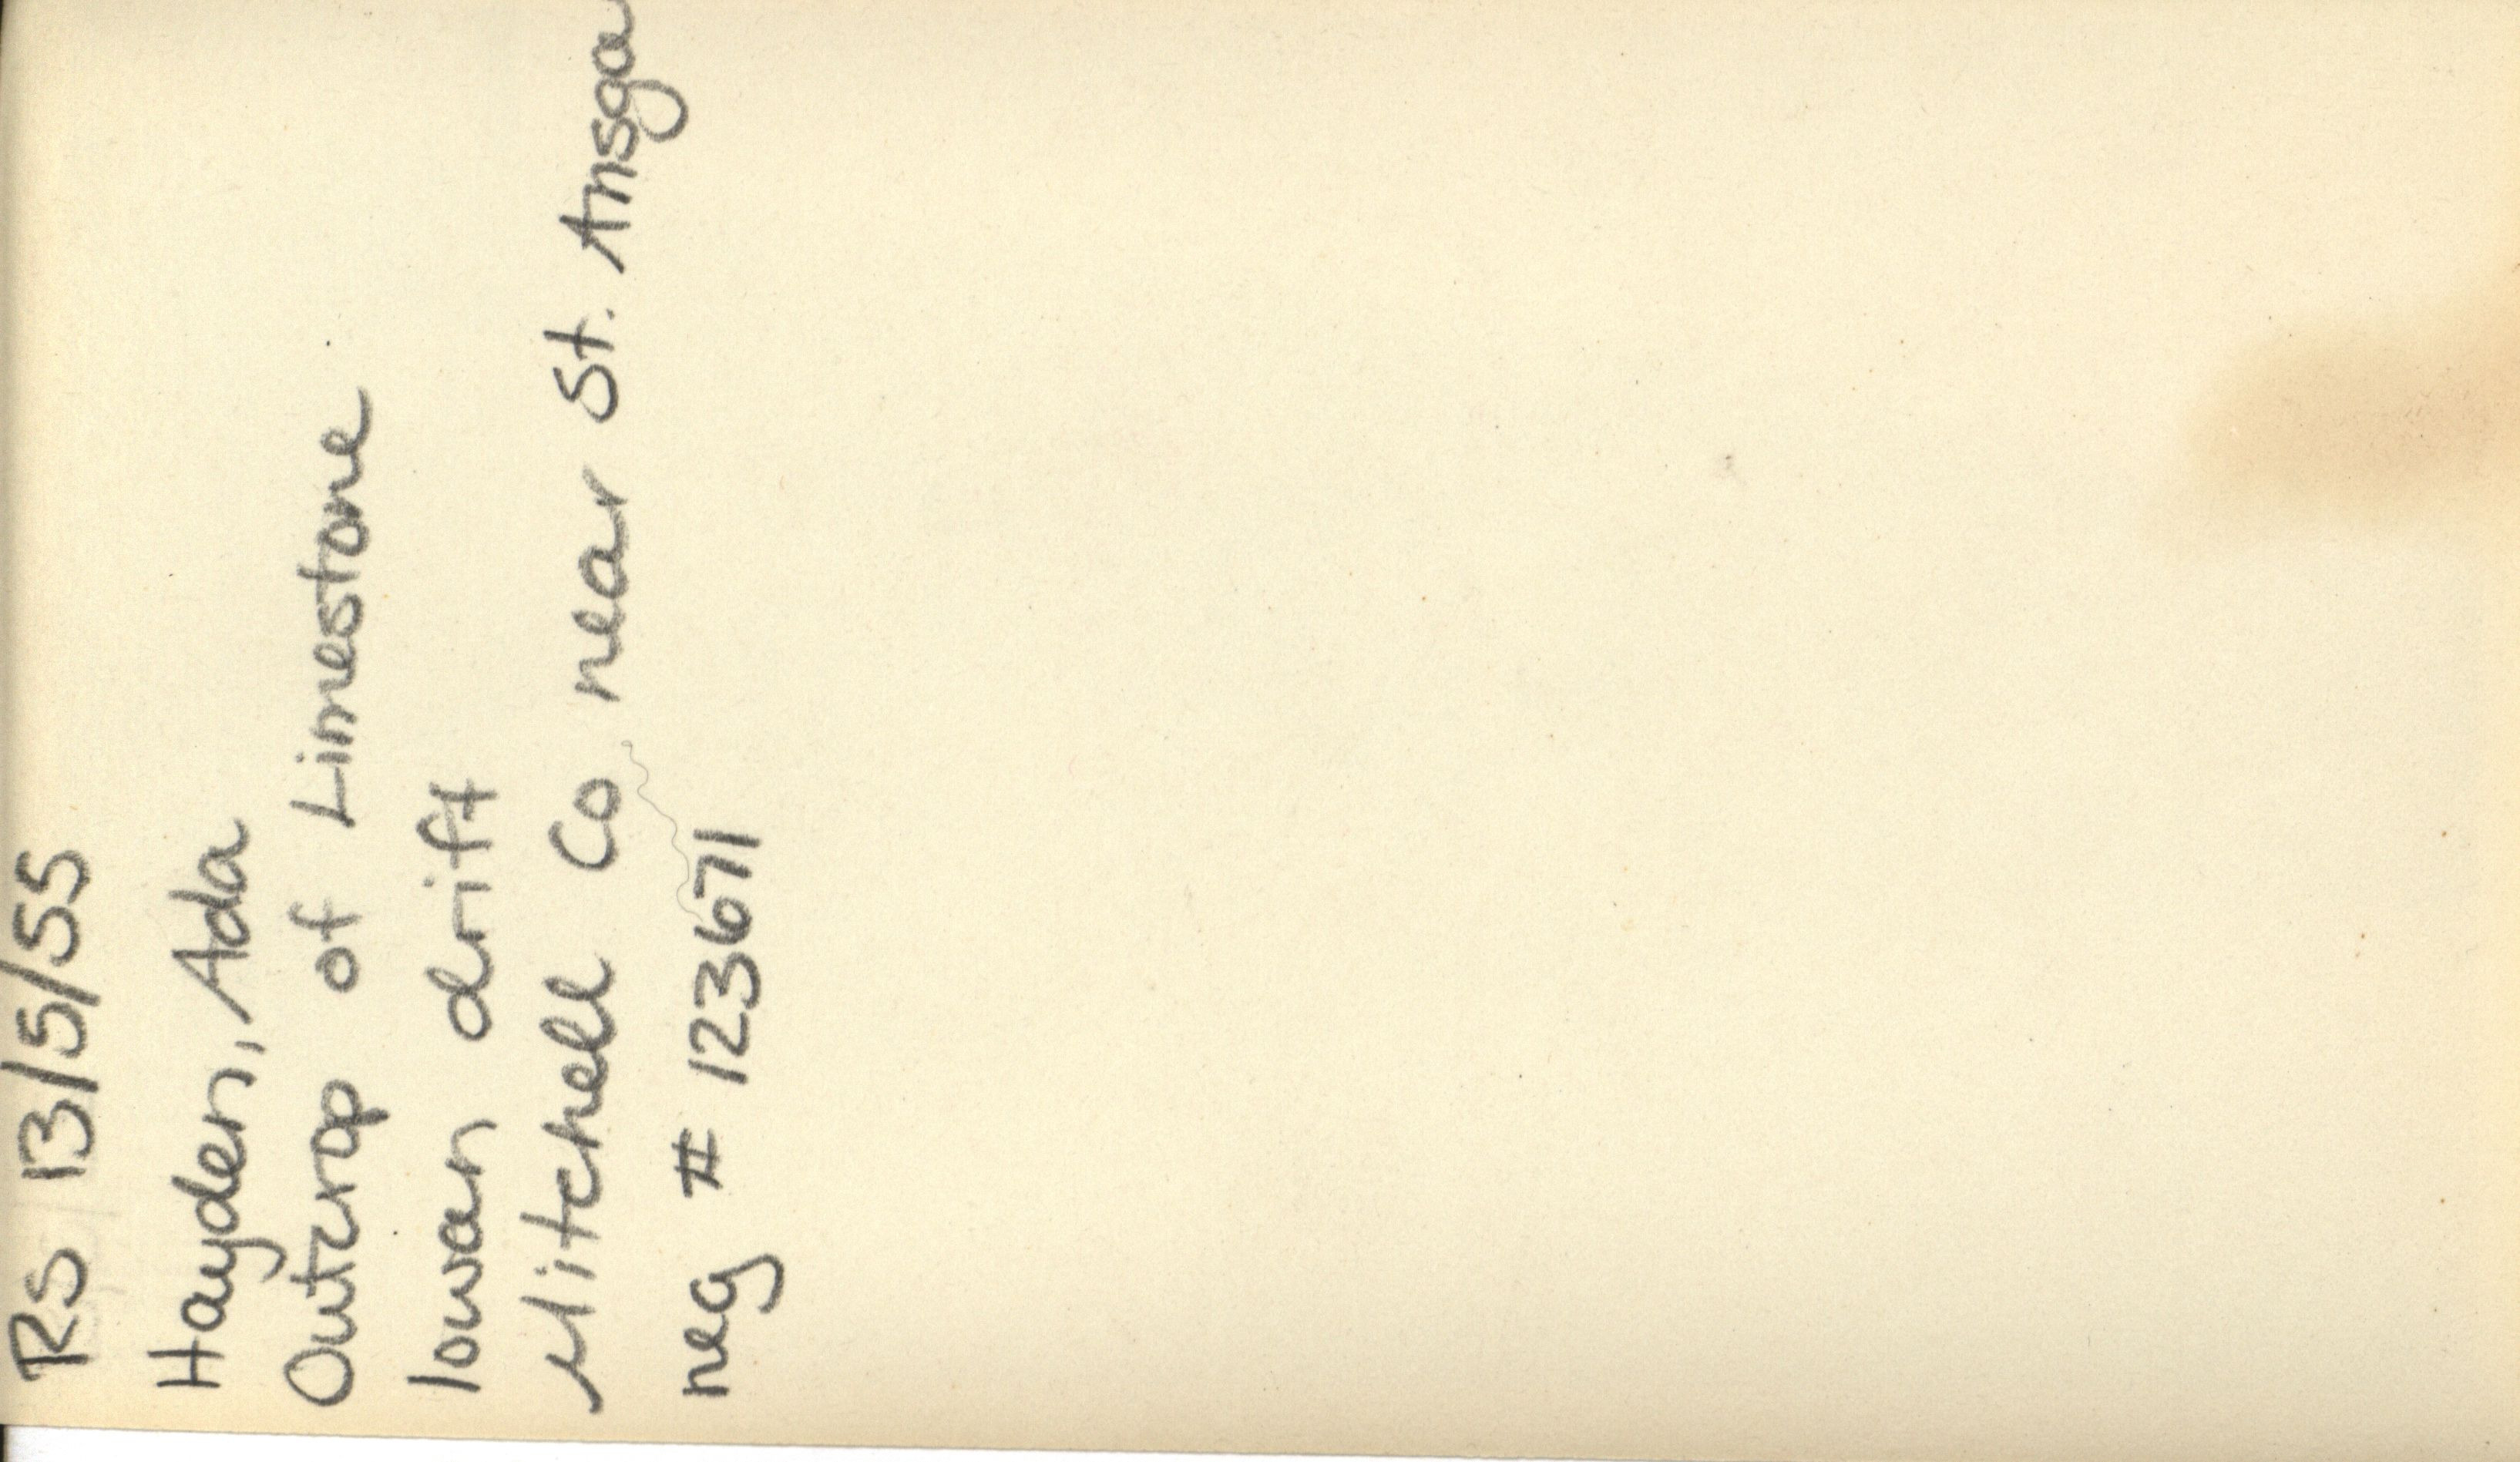 RS 13/5/55
Hayden, Ada
Outcrop of Limestone
Iowan drift
Mitchell Co. near St. Ansga
neg # 123671